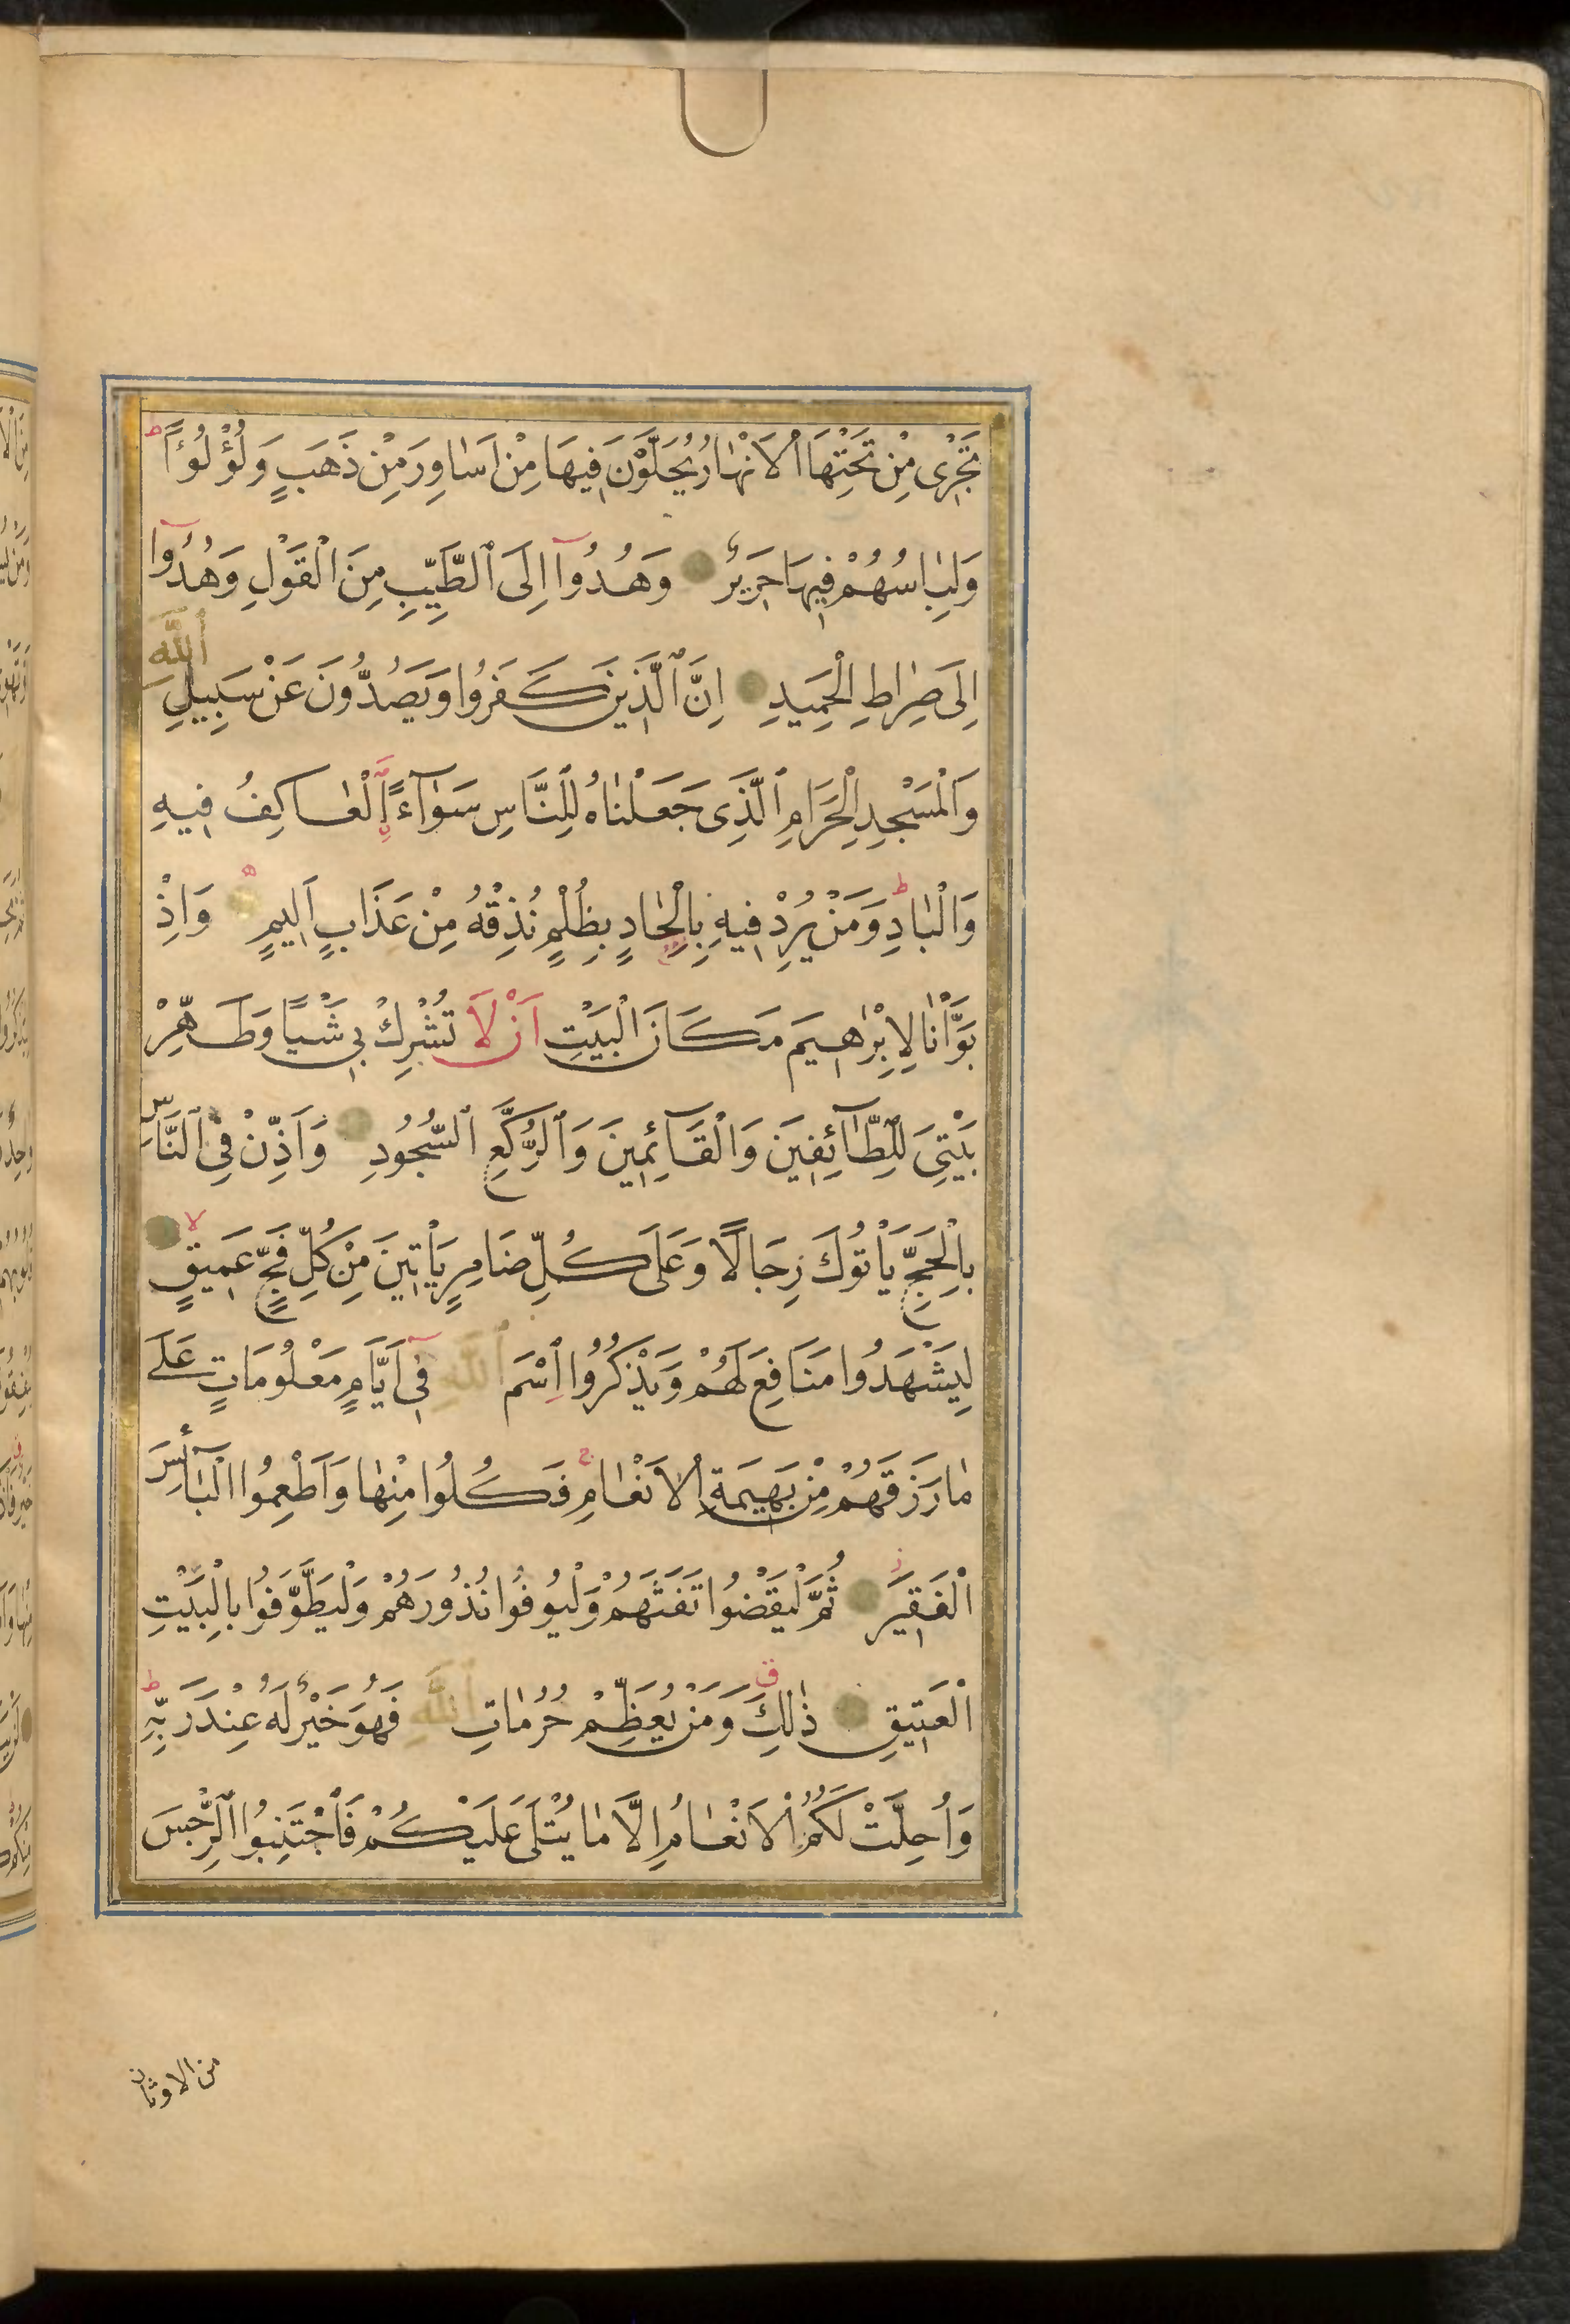 تَجْرٖى مِنْ تَحْتِهَا الْاَنْهَارُ يُحَلَّوْنَ فِيهَا مِنْ اَسَاوِرَ مِنْ ذَهَبٍ وَلُؤْلُؤًا ط
وَلِبَاسُهُمْ فِيهَا حَرِيرٌ وَهُدُوآ اِلَى الطَّيِّبِ مِنَ الْقَوْلِ وَهُدُوآ
اِلٰى صِرَاطِ الْحَمِيدِ اِنَّ الَّذِينَ كَفَرُوا وَيَصُدُّونَ عَنْ سَبِيلِ اللّٰهِ
وَالْمَسْجِدِ الْحَرَامِ الَّذِى جَعَلْنَاهُ لِلنَّاسِ سَوَآءً اَلْعَاكِفُ فِيهِ
وَالْبَادِ ط وَمَنْ يُرِدْ فِيهِ بِاِلْحَادٍ بِظُلْمٍ نُذِقْهُ مِنْ عَذَابٍ اَلِيمٍ وَاِذْ
بَوَّاْنَا لِاِبْرٰهِيمَ مَكَانَ الْبَيْتِ اَنْ لَا تُشْرِكْ بِى شَيْـًٔا وَطَهِّرْ
بَيْتِىَ لِلطَّآئِفِينَ وَالْقَآئِمِينَ وَالرُّكَّعِ السُّجُودِ وَاَذِّنْ فِى النَّاسِ
بِالْحَجِّ يَاْتُوكَ رِجَالًا وَعَلٰى كُلِّ ضَامِرٍ يَاْتِينَ مِنْ كُلِّ فَجٍّ عَمِيقٍ لا
لِيَشْهَدُوا مَنَافِعَ لَهُمْ وَيَذْكُرُوا اسْمَ اللّٰهِ فِىٓ اَيَّامٍ مَعْلُومَاتٍ عَلٰى
مَا رَزَقَهُمْ مِنْ بَهِيمَةِ الْاَنْعَامِ ج فَكُلُوا مِنْهَا وَاَطْعِمُوا الْبَآئِسَ
الْفَقِيرَ ز ثُمَّ لْيَقْضُوا تَفَثَهُمْ وَلْيُوفُوا نُذُورَهُمْ وَلْيَطَّوَّفُوا بِالْبَيْتِ
الْعَتِيقِ ذٰلِكَ ق وَمَنْ يُعَظِّمْ حُرُمَاتِ اللّٰهِ فَهُوَ خَيْرٌ لَهُ عِنْدَ رَبِّهِ ط
وَاُحِلَّتْ لَكُمُ الْاَنْعَامُ اِلَّا مَا يُتْلٰى عَلَيْكُمْ فَاجْتَنِبُوا الرِّجْسَ
من الاوثان